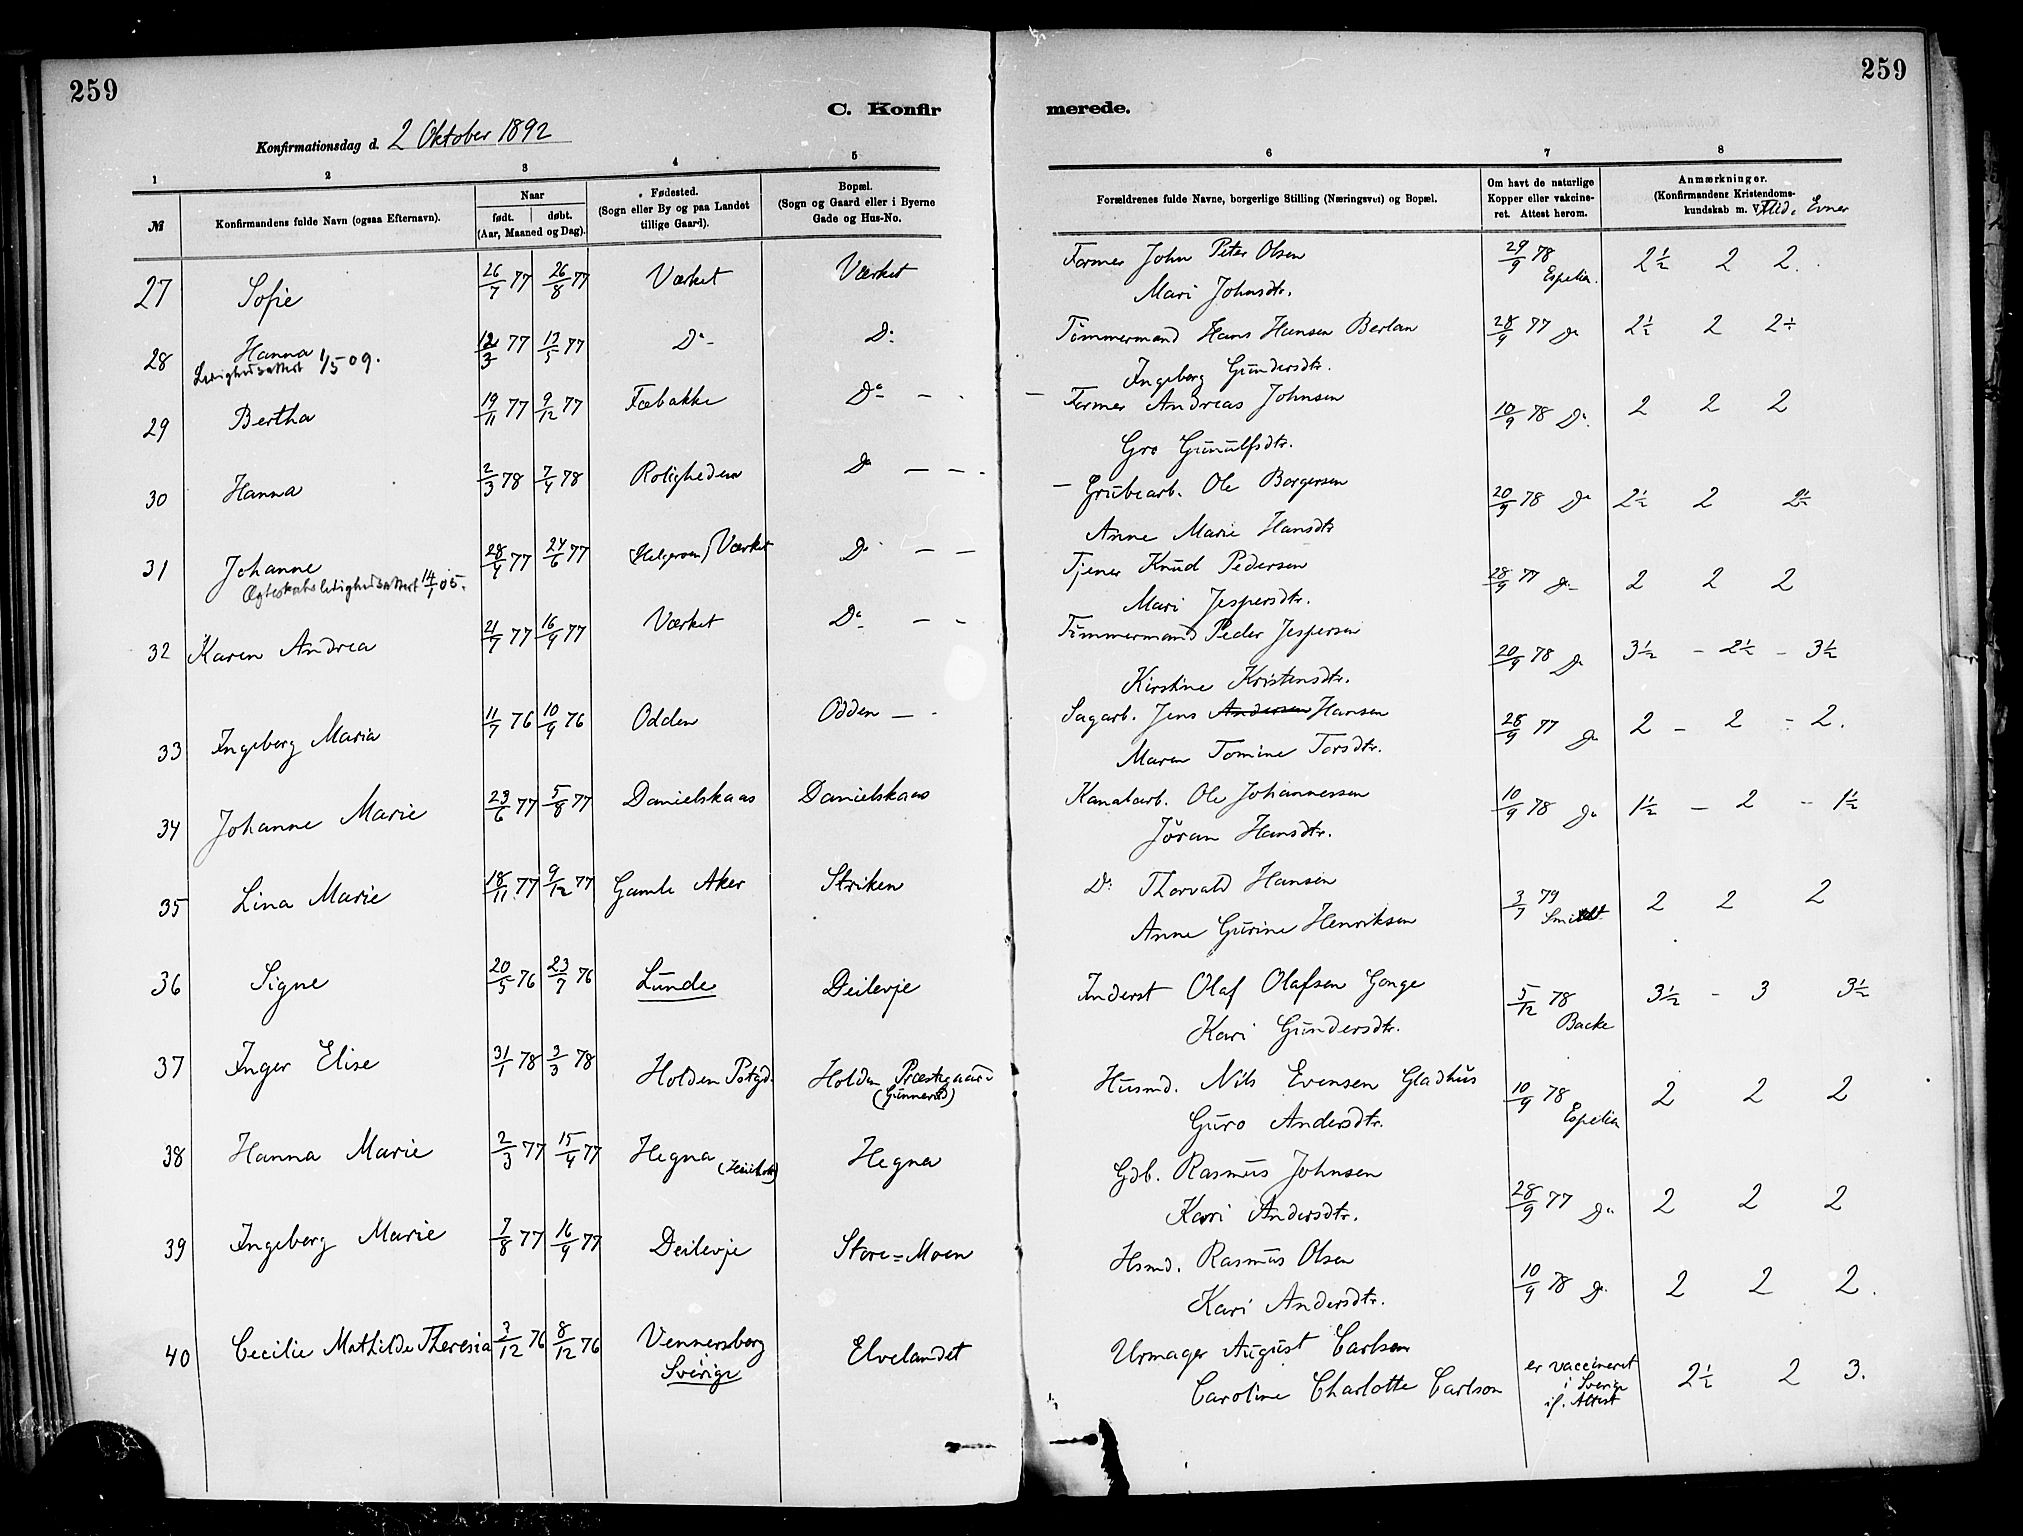 259
259
C. Konfirmerede.
Konfirmationsdag d. 2 Oktober 1892
1 2 3 4 5 6 7 8
№ Konfirmandens fulde Navn (ogsaa Efternavn). Naar født. døbt. (Aar, Maaned og Dag). Fødested. (Sogn eller By og paa Landet tillige Gaard). Bopæl. (Sogn og Gaard eller i Byerne Gade og Hus-No. Forældrenes fulde Navne, borgerlige Stilling (Næringsvei) og Bopæl. Om havt de naturlige Kopper eller vakcineret. Attest herom. Anmærkninger. (Konfirmandens Kristendomskundskab m. V. Flid. Evner
27 Sofie 26/7 77 26/8 77 Værket Værket Former John Peter Olsen 29/9 78 Espelin. 2½ 2 2.
Mari Johnsdtr.
28 Hanna 12/3 77 13/5 77 Do Do Tömmermand Hans Hansen Berlan 28/9 77 Do 2½ 2 2÷
Ledighedsattest 1/5 09. Ingeborg Gundersdtr.
29 Bertha 19/11 77 9/12 77 Fæbakke Do - - Former Andreas Johnsen 10/9 78 Do. 2 2 2
Gro Gunulfsdtr.
30 Hanna 2/3 78 7/4 78 Roligheden Do - - Grubearb. Ole Borgersen 20/9 78 Do 2½ 2 2½
Anne Marie Hansdtr
31 Johanne 28/4 77 24/6 77 (Helgeroen) Værket Do - - Tjener Knud Pedersen 28/9 77 Do 2 2 2
Ægteskabsledighedsattest 14/1 05. Mari Jespersdtr.
32 Karen Andrea 21/7 77 16/9 77 Værket Do - - Tömmermand Peder Jespersen 20/9 78 Do 3½ - 2½ - 3½
Kirstine Kristensdtr.
33 Ingeborg Maria 11/7 76 10/9 76 Odden Odden - Sagarb. Jens Andersen Hansen 28/9 77 Do 2 - 2 - 2.
Maren Tomine Torsdtr.
34 Johanne Marie 23/6 77 5/8 77 Danielskaas Danielskaas Kanalarb. Ole Johannessen 10/9 78 Do 1½ - 2 - 1½
Jöran Hansdtr.
35 Lina Marie 18/11 77 9/12 77 Gamle Aker Striken Do Thorvald Hansen 3/7 79 Smidt 2 2 2
Anne Gurine Henriksen
36 Signe 20/5 76 23/7 76 Lunde Deilevje Inderst Olaf Olafsen Gonge 5/12 78 Backe 3½ - 3 3½
Kari Gundersdtr.
37 Inger Elise 31/1 78 3/3 78 Holden Pstgd. Holden Præstegaard (Gunnerød) Husmd. Nils Evensen Gladhus 10/9 78 Espelin 2 2 2
Guro Andersdtr.
38 Hanna Marie 2/3 77 15/4 77 Hegna Hegna Gdb. Rasmus Johnsen 28/9 77 Do 2 2 2
Kari Andersdtr.
39 Ingeborg Marie 7/8 77 16/9 77 Deilevje Store=Moen Hsmd. Rasmus Olsen 10/9 78 Do. 2 2 2.
Kari Andersdtr.
40 Cecilie Mathilde Theresia 3/12 76 8/12 76 Vennersborg Elvelandet Urmager August Carlson er vaccineret 2½ 2 3.
Sverige Caroline Charlotte Carlson i Sverige
if. Attest